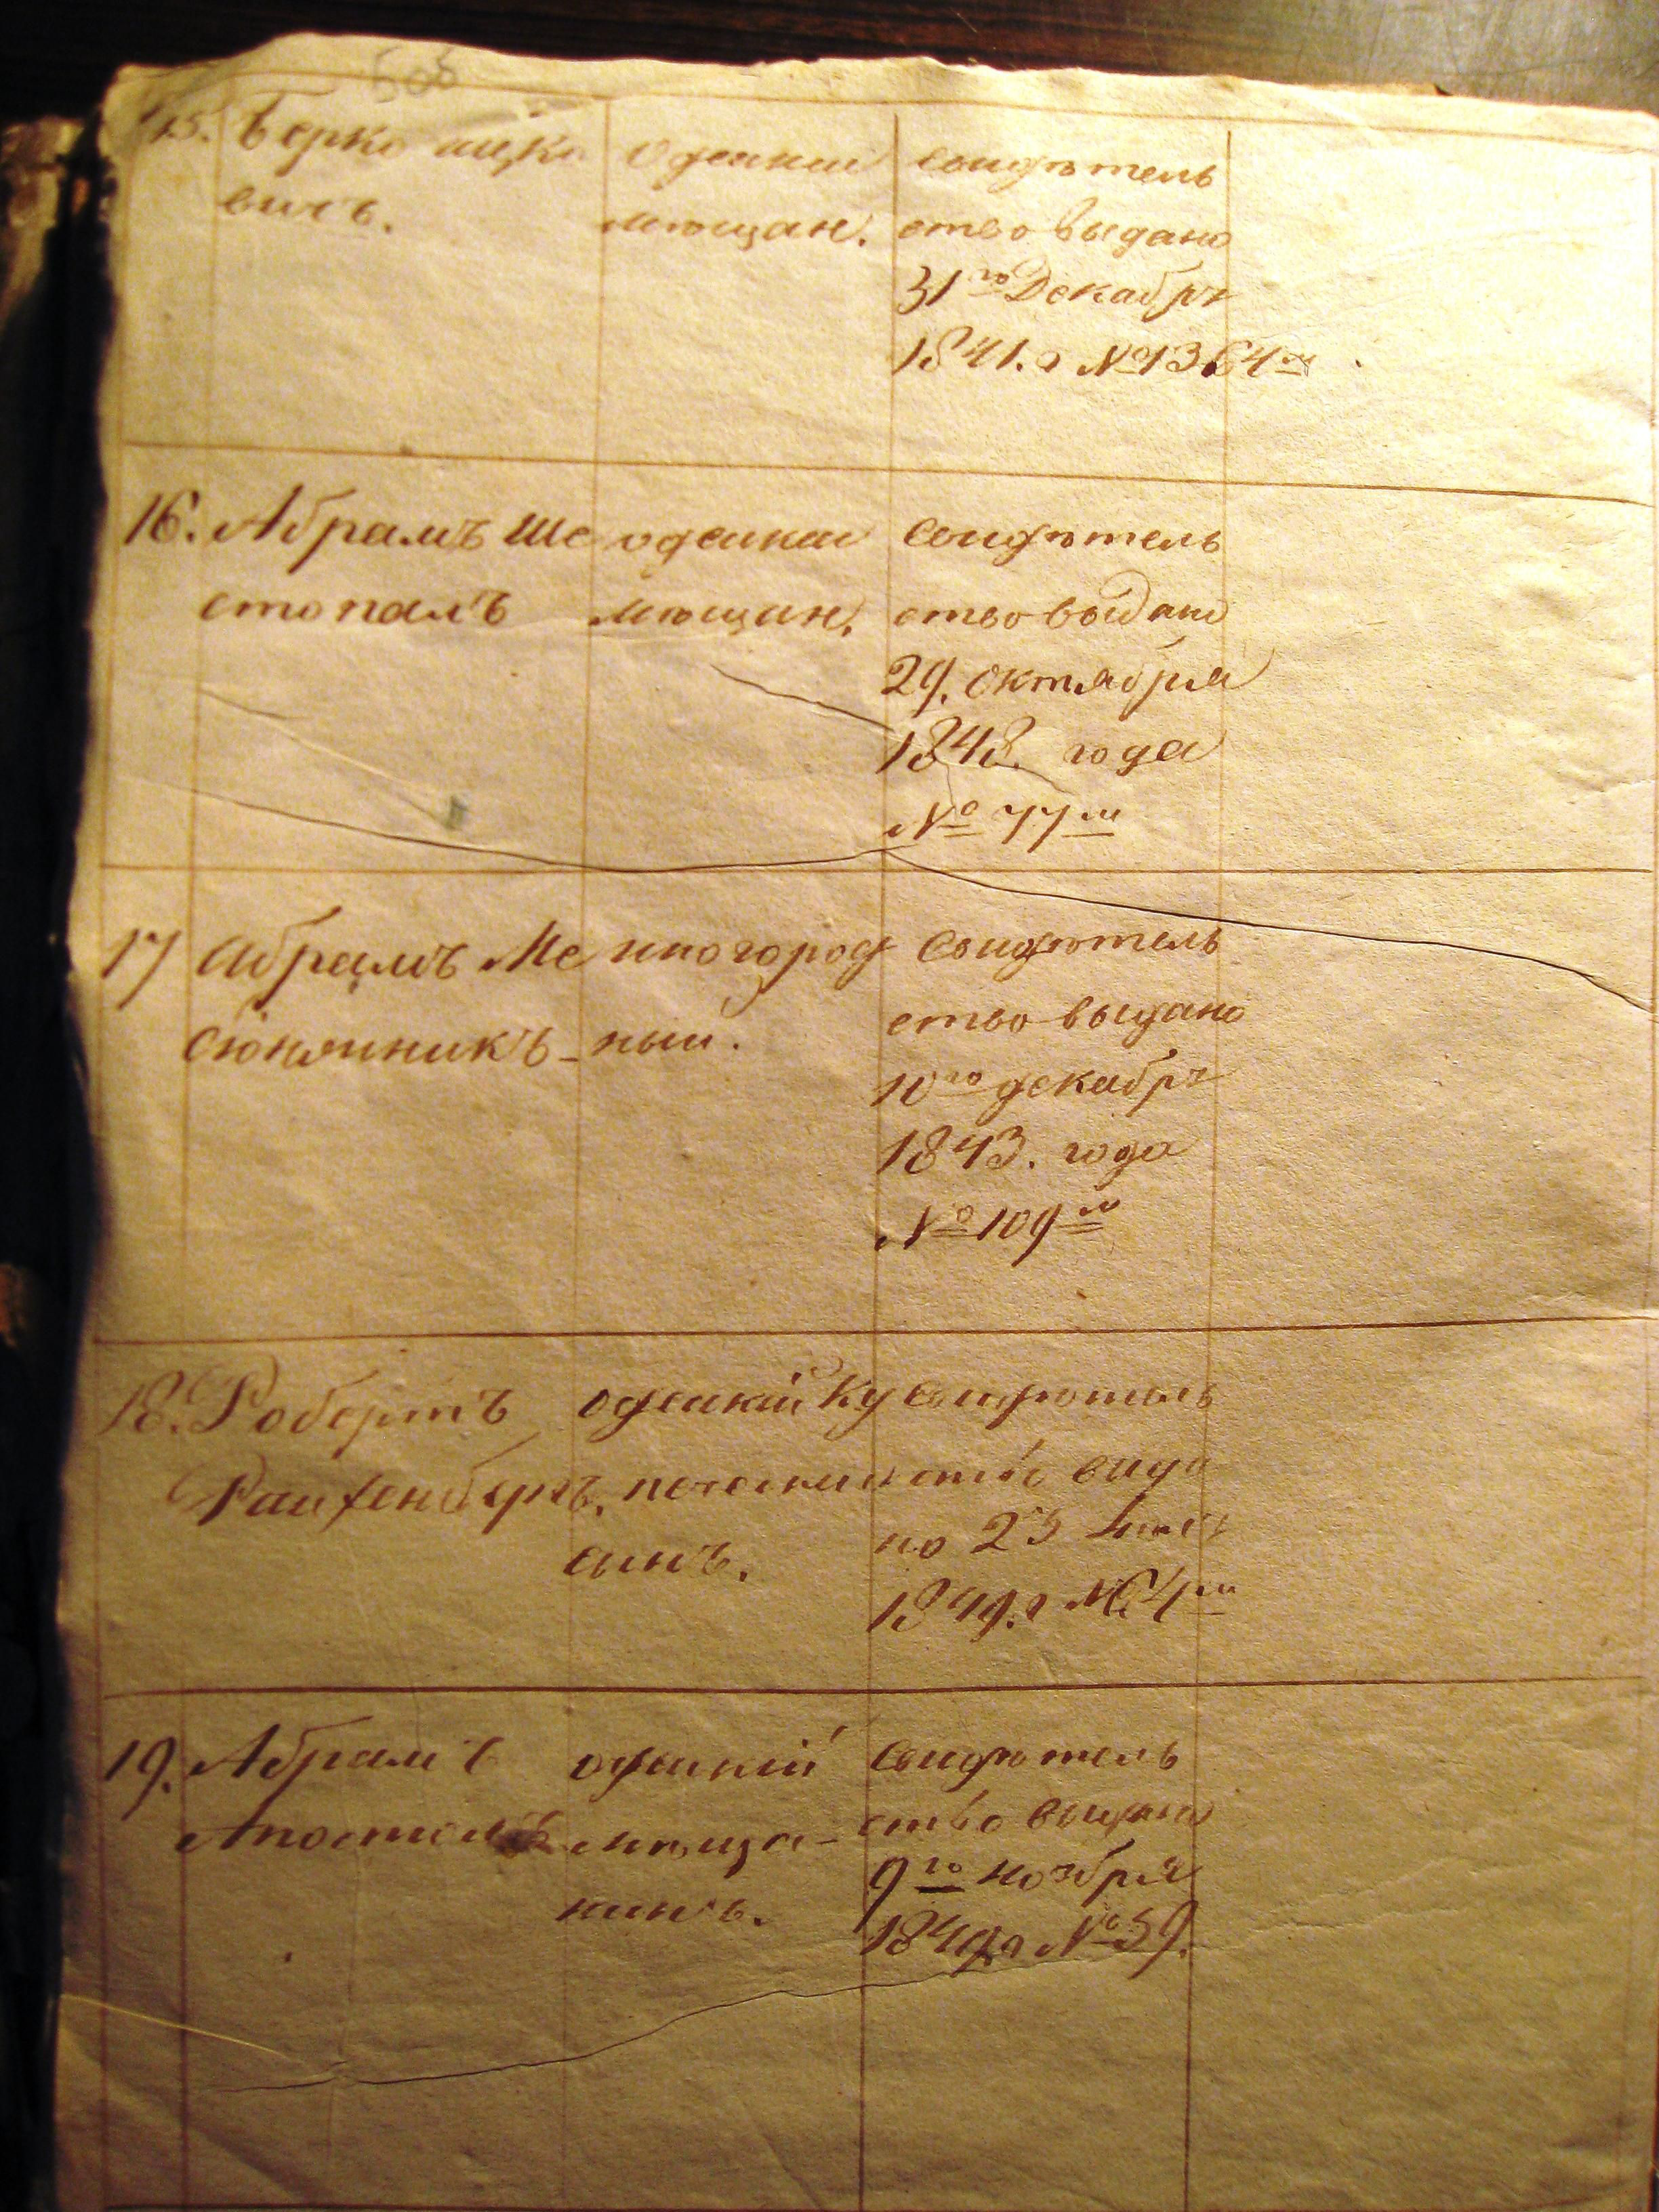 15. Берко ицко
вичъ.
Одескій
мѣщан.
свидѣтель
ство выдано
31го Декабря
1841. г №1364м
16. Абрамъ Ше
стопалъ
одескій
мѣщан.
свидѣтель
ство выдано
29. октября
1848. года
№ 77м
17 Абрамъ Ме
иногород
ный.
свидѣтель
ство выдано
10го декабря
1843. года
№ 109м
18. Робертъ
одескій ку
печескій
сынъ.
свидѣтель
ство выда
но 23
1849. г № 64м
19. Абрамъ
Апостолъ
одескій
мѣща-
нинъ.
свидѣтель
ство выдано
9го ноября
1849 г № 59.